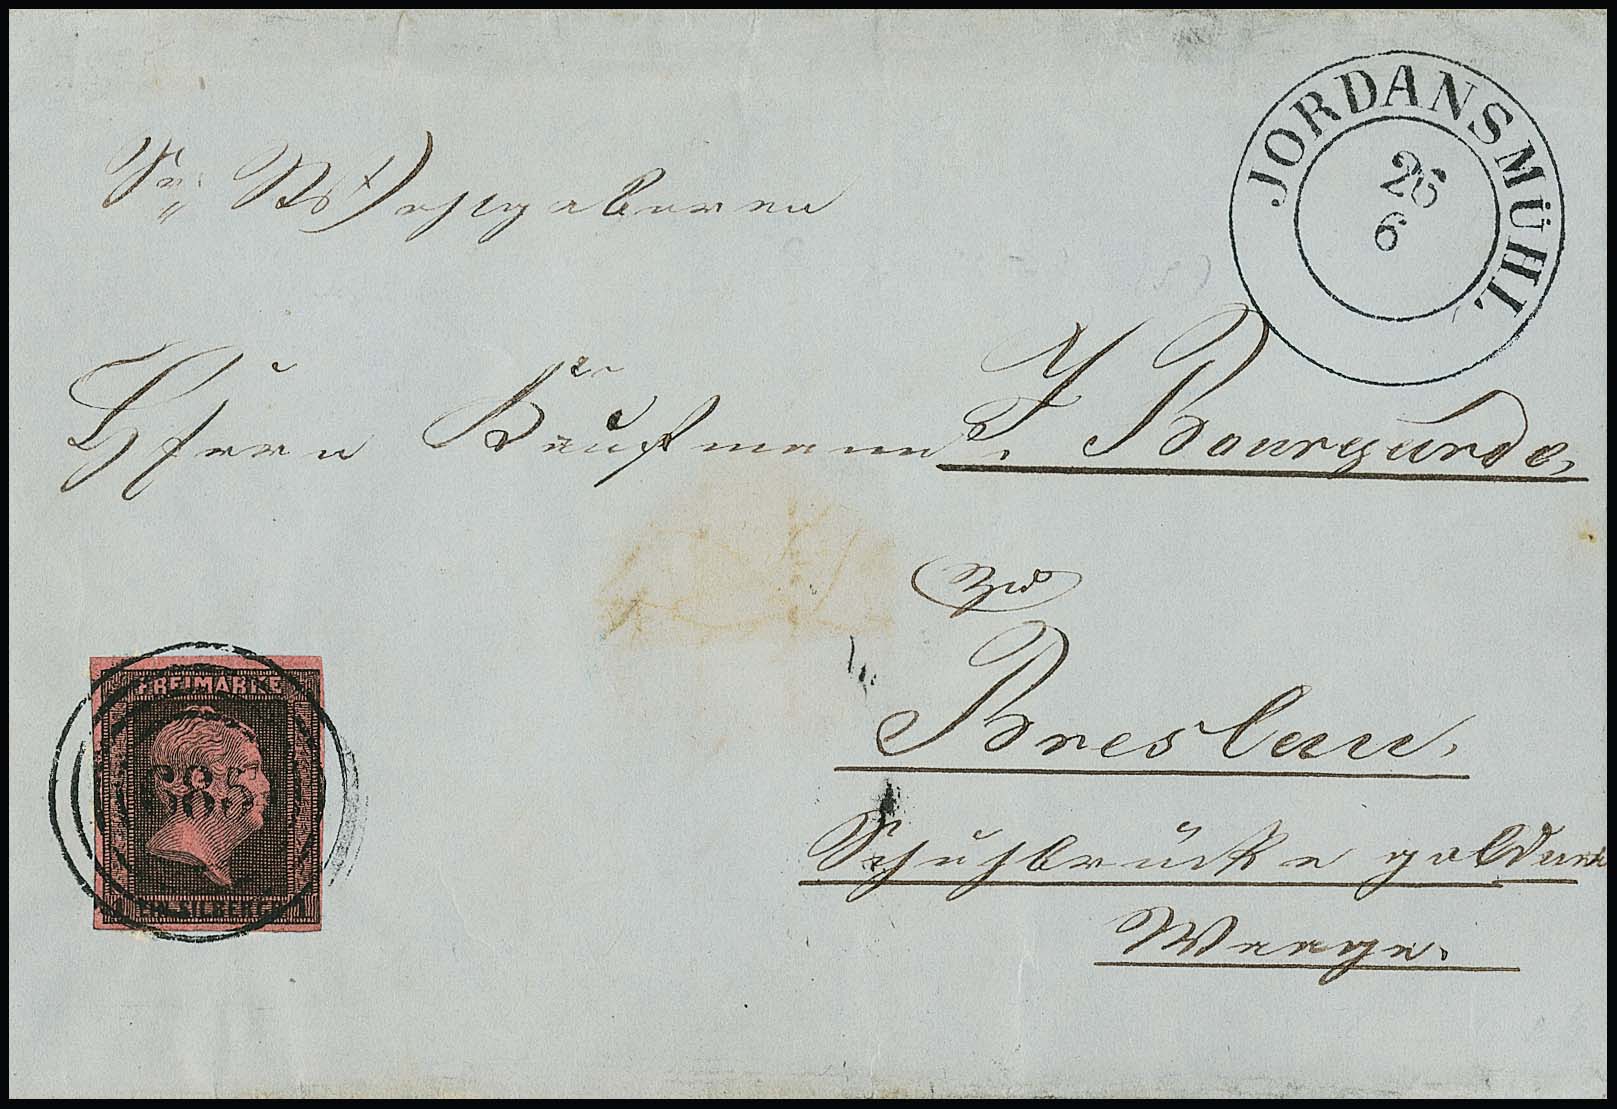 JORDANSMÜHL
26
6
Sr. Wohlgeboren
Herrn Kaufmann J Bourgarde
zu
Breslau.
Schuhbrücke goldene
Waage.
FREIMARKE
685
1 EIN SILBERGR. 1